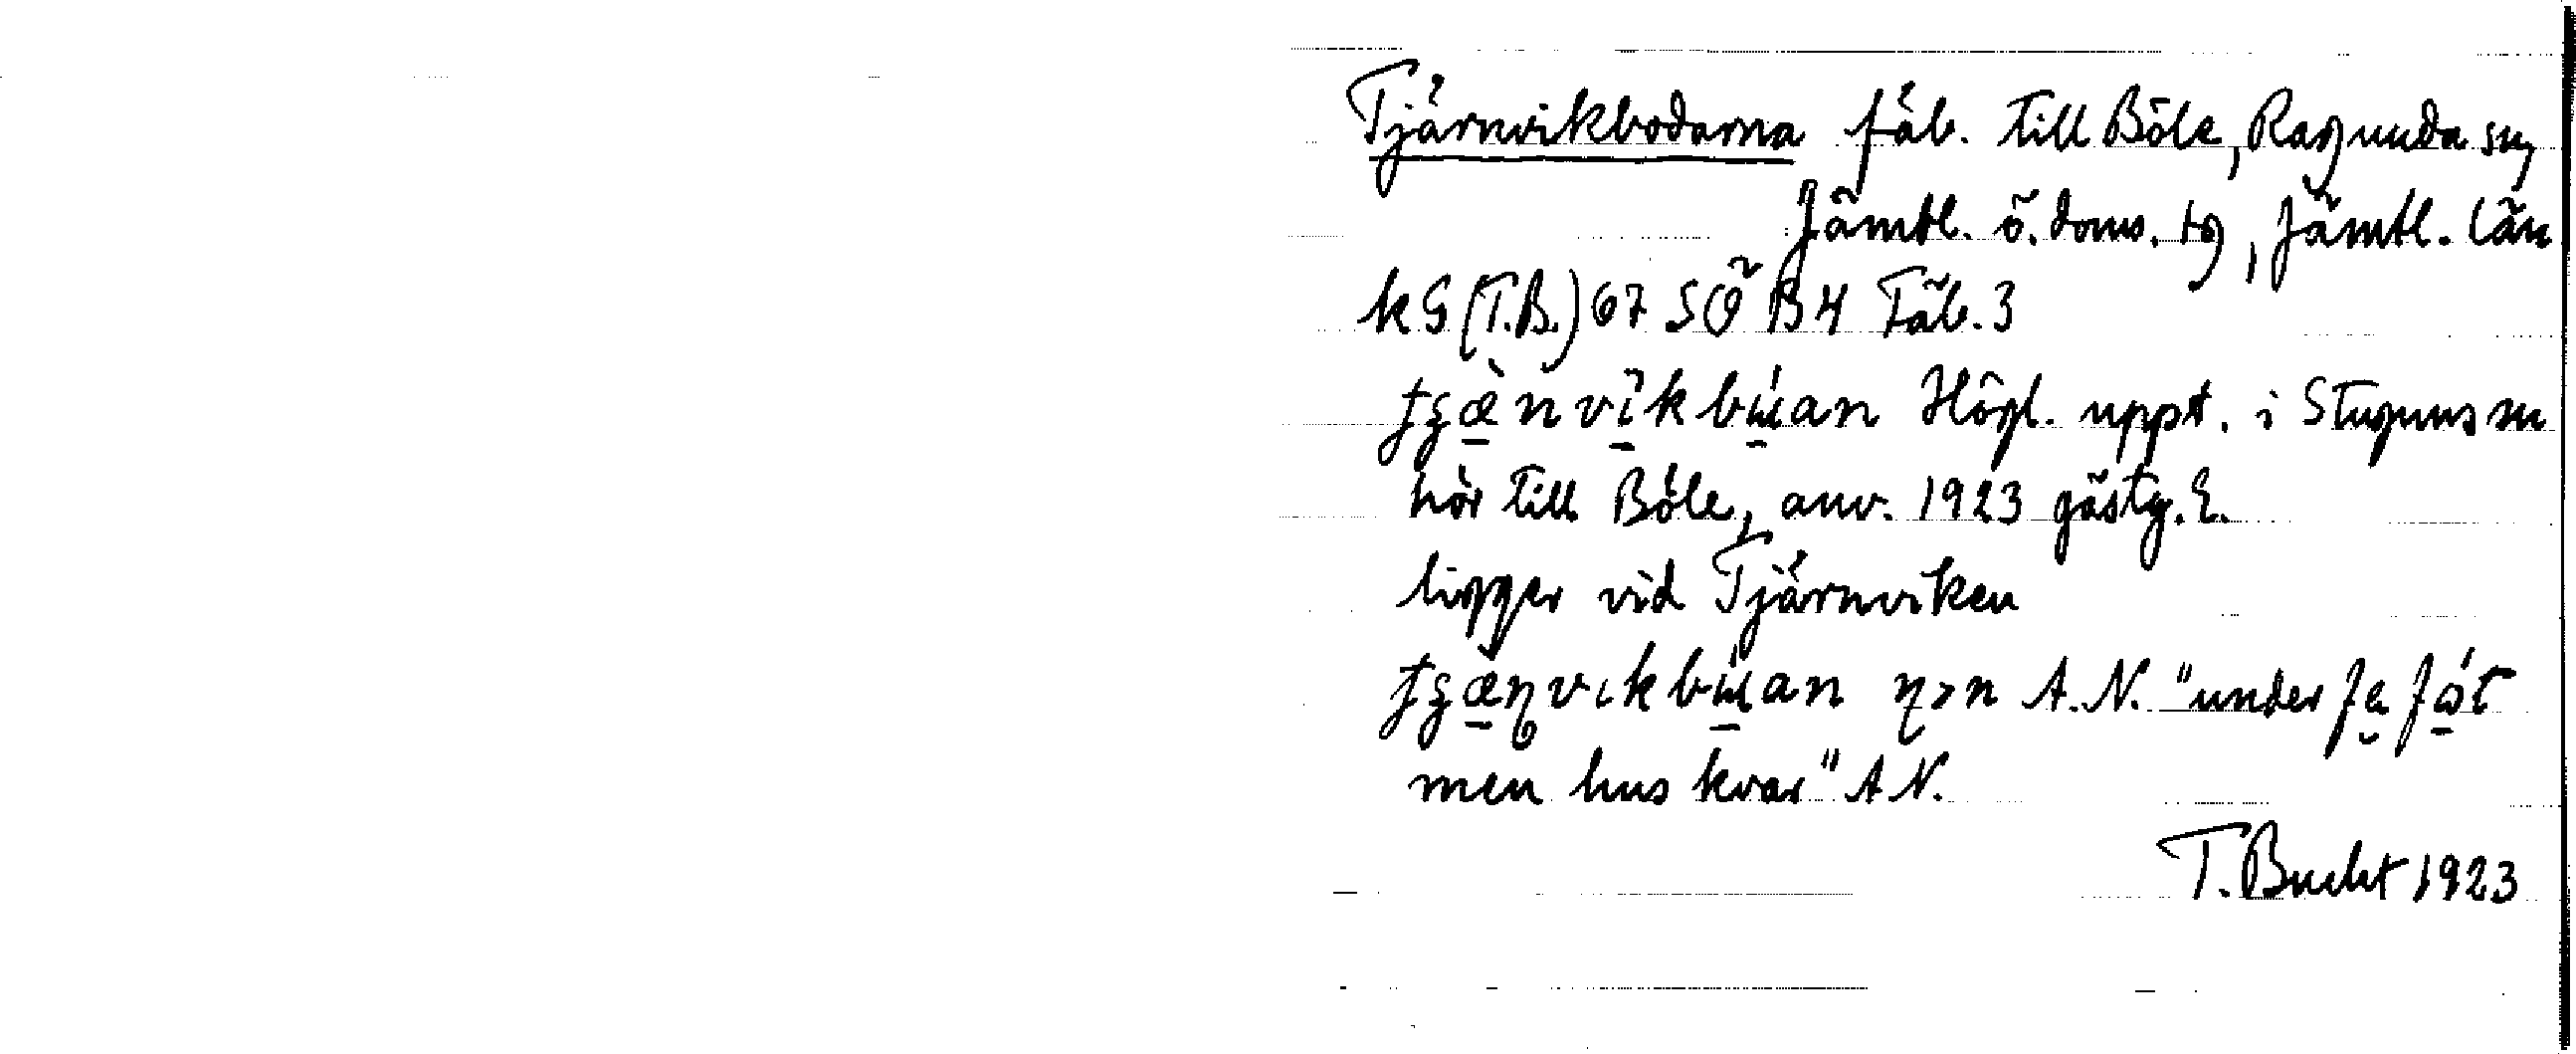 Tjärnvikbodarna fäb. till Böle, Ragunda sn,
Jämtl. ö. doms. tg, Jämtl. län
kG (T.B.) 67 SÖ B4 Fäb. 3
Högl. uppt. i Stuguns sn
hör till Böle, anv. 1923 gästg. E.
ligger vid Tjärnviken
A.N. "under
men hus kvar" A N.
T. Bucht 1923